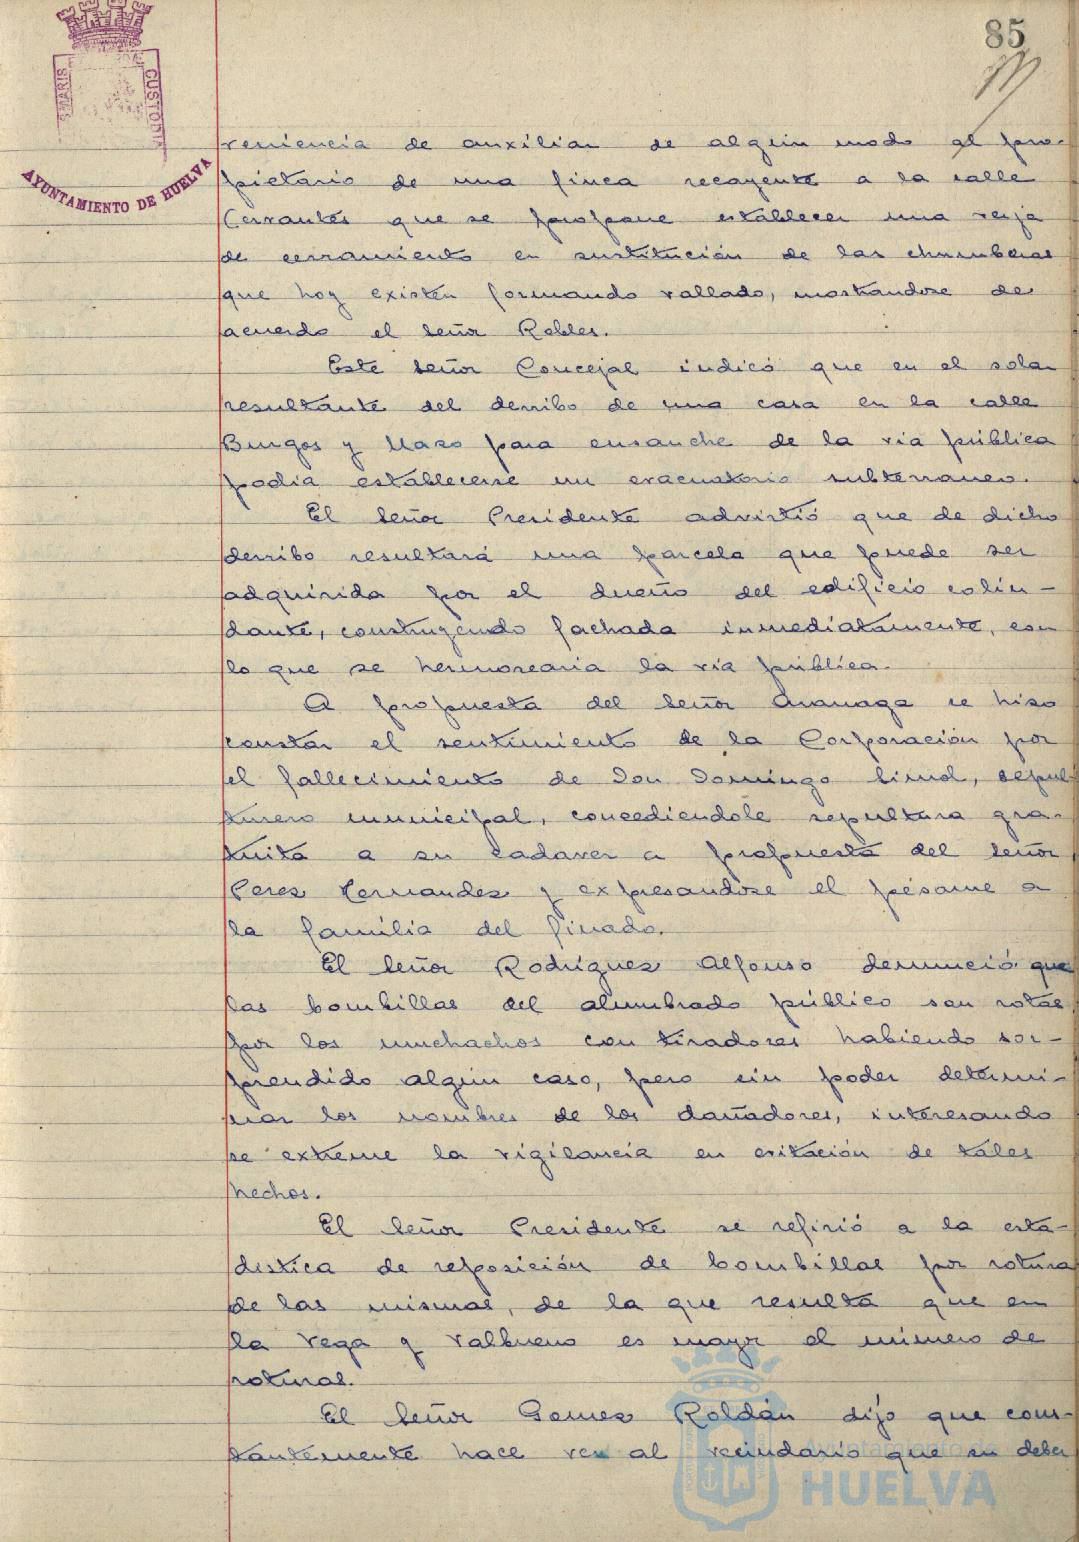 85
S MARIS CUSTODIA
AYUNTAMIENTO DE HUELVA
veniencia de auxiliar de algún modo al pro-
pietario de una finca recayente a la calle
Cervantes que se propone establecer una verja
de cerramiento en sustitución de las chumberas
que hoy existen formando vallado, mostrandose de
acuerdo el señor Robles.
Este señor Concejal indicó que en el solar
resultante del derribo de una casa en la calle
Burgos y Mazo para ensanche de la via pública
podia establecerse un evacuatorio subterraneo.
El señor Presidente advirtió que de dicho
derribo resultará una parcela que puede ser
adquirida por el dueño del edificio colin-
dante, construyendo fachada inmediatamente, con
lo que se hermosearia la via pública.
A propuesta del señor Aranaga se hizo
constar el sentimiento de la Corporación por
el fallecimiento de Don Domingo, sepul-
turero municipal, concediendole sepultura gra-
tuita a su cadaver a propuesta del señor
Perez Hernandez y expresandose el pésame a
la familia del finado.
El señor Rodríguez Alfonso denunció que
las bombillas del alumbrado público son rotas
por los muchachos con tiradores habiendo sor-
prendido algún caso, pero sin poder determi-
nar los nombres de los dañadores, interesando
se extreme la vigilancia en evitación de tales
hechos.
El señor Presidente se refirió a la esta-
distica de reposición de bombillas por rotura
de las mismas, de la que resulta que en
la Vega y Valbueno es mayor el número de
roturas.
El señor Gomez Roldán dijo que cons-
tantemente hace ver al vecindario que su deber
Ayuntamiento de
HUELVA